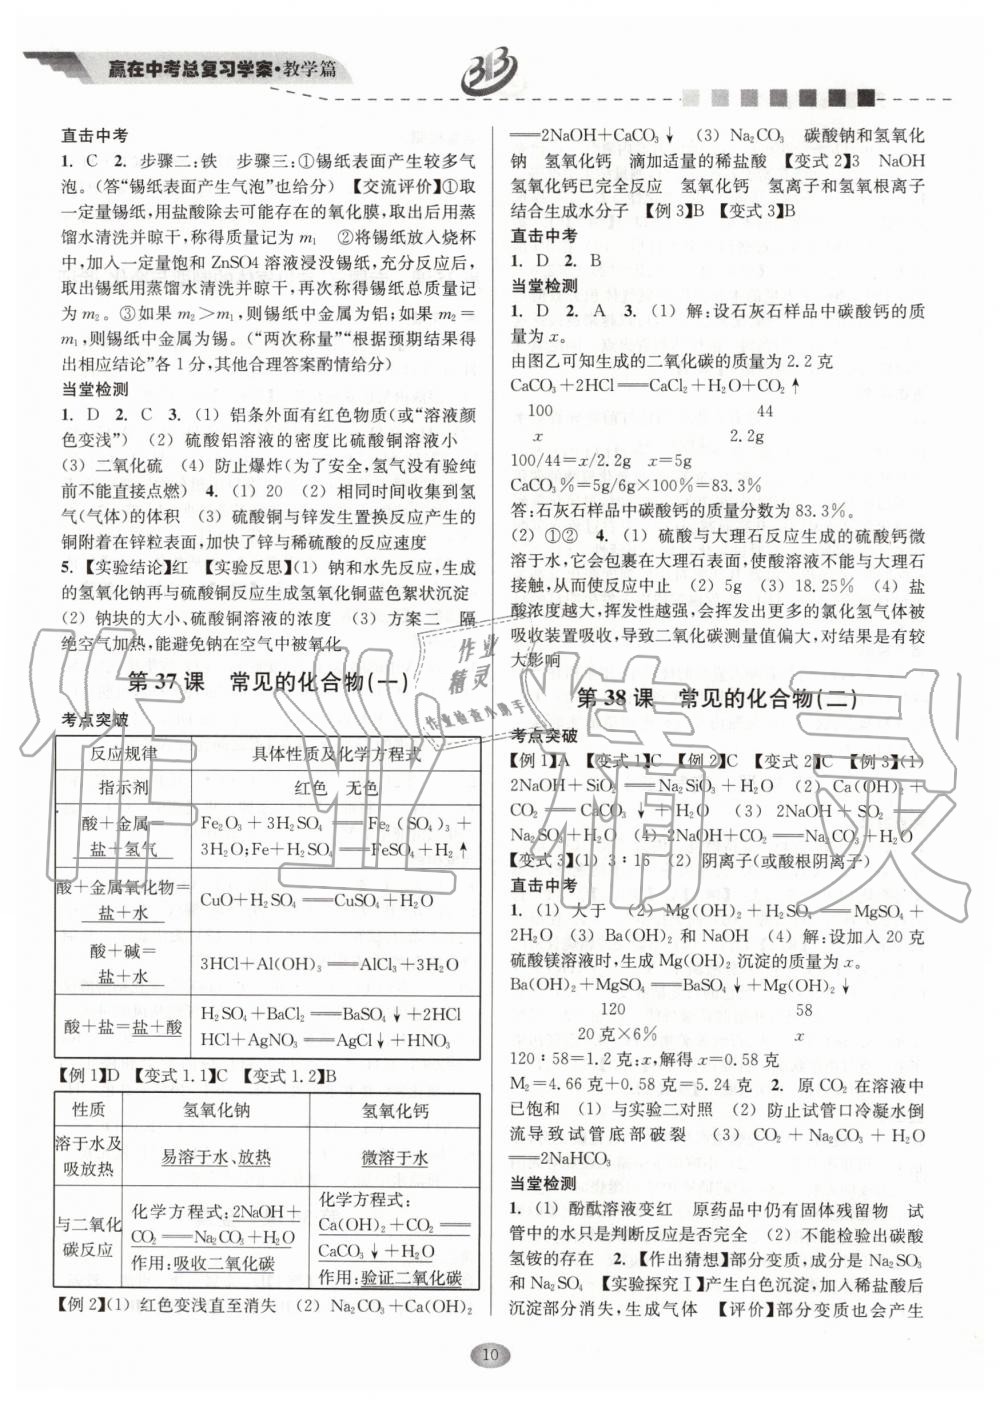 赢在中考总复习学案·教学篇
直击中考
1. C 2. 步骤二:铁 步骤三:①锡纸表面产生较多气
泡。(答“锡纸表面产生气泡”也给分)【交流评价】①取
一定量锡纸,用盐酸除去可能存在的氧化膜,取出后用蒸
馏水清洗并晾干,称得质量记为m₁ ②将锡纸放入烧杯
中,加入一定量饱和ZnSO4溶液浸没锡纸,充分反应后,
取出锡纸用蒸馏水清洗并晾干,再次称得锡纸总质量记
为m₂。③如果m₂>m₁,则锡纸中金属为铝;如果m₂=
m₁,则锡纸中金属为锡。(“两次称量”“根据预期结果得
出相应结论”各1分,其他合理答案酌情给分)
当堂检测
1. D 2. C 3. (1) 铝条外面有红色物质(或“溶液颜
色变浅”) (2) 硫酸铝溶液的密度比硫酸铜溶液小
(3) 二氧化硫 (4) 防止爆炸(为了安全,氢气没有验纯
前不能直接点燃) 4. (1) 20 (2) 相同时间收集到氢
气(气体)的体积 (3) 硫酸铜与锌发生置换反应产生的
铜附着在锌粒表面,加快了锌与稀硫酸的反应速度
5. 【实验结论】红 【实验反思】(1) 钠和水先反应,生成
的氢氧化钠再与硫酸铜反应生成氢氧化铜蓝色絮状沉淀
(2) 钠块的大小、硫酸铜溶液的浓度 (3) 方案二 隔
绝空气加热,能避免钠在空气中被氧化
第37课 常见的化合物(一)
考点突破
反应规律 具体性质及化学方程式
指示剂 红色 无色
酸+金属=
盐+氢气
Fe₂O₃+3H₂SO₄══Fe₂(SO₄)₃+
3H₂O;Fe+H₂SO₄══FeSO₄+H₂↑
酸+金属氧化物=
盐+水
CuO+H₂SO₄══CuSO₄+H₂O
酸+碱=
盐+水
3HCl+Al(OH)₃══AlCl₃+3H₂O
酸+盐=盐+酸
H₂SO₄+BaCl₂══BaSO₄↓+2HCl
HCl+AgNO₃══AgCl↓+HNO₃
【例1】D 【变式1.1】C 【变式1.2】B
性质 氢氧化钠 氢氧化钙
溶于水及
吸放热
易溶于水、放热 微溶于水
与二氧化
碳反应
化学方程式:2NaOH+
CO₂══Na₂CO₃+H₂O
作用:吸收二氧化碳
化学方程式:
Ca(OH)₂+CO₂══
CaCO₃↓+H₂O
作用:验证二氧化碳
【例2】(1) 红色变浅直至消失 (2) Na₂CO₃+Ca(OH)₂
══2NaOH+CaCO₃↓ (3) Na₂CO₃ 碳酸钠和氢氧化
钠 氢氧化钙 滴加适量的稀盐酸 【变式2】3 NaOH
氢氧化钙已完全反应 氢氧化钙 氢离子和氢氧根离子
结合生成水分子 【例3】B 【变式3】B
直击中考
1. D 2. B
当堂检测
1. D 2. A 3. (1) 解:设石灰石样品中碳酸钙的质
量为x。
由图乙可知生成的二氧化碳的质量为2.2克
CaCO₃+2HCl══CaCl₂+H₂O+CO₂↑
100 44
x 2.2g
100/44=x/2.2g x=5g
CaCO₃%=5g/6g×100%=83.3%
答:石灰石样品中碳酸钙的质量分数为83.3%。
(2) ①② 4. (1) 硫酸与大理石反应生成的硫酸钙微
溶于水,它会包裹在大理石表面,使酸溶液不能与大理石
接触,从而使反应中止 (2) 5g (3) 18.25% (4) 盐
酸浓度越大,挥发性越强,会挥发出更多的氯化氢气体被
吸收装置吸收,导致二氧化碳测量值偏大,对结果是有较
大影响
第38课 常见的化合物(二)
考点突破
【例1】A 【变式1】C 【例2】C 【变式2】C 【例3】(1)
2NaOH+SiO₂══Na₂SiO₃+H₂O (2) Ca(OH)₂+
CO₂══CaCO₃↓+H₂O (3) 2NaOH+SO₂══
Na₂SO₃+H₂O (4) 2NaOH+CO₂══Na₂CO₃+H₂O
【变式3】(1) 3∶16 (2) 阴离子(或酸根阴离子)
直击中考
1. (1) 大于 (2) Mg(OH)₂+H₂SO₄══MgSO₄+
2H₂O (3) Ba(OH)₂和NaOH (4) 解:设加入20克
硫酸镁溶液时,生成Mg(OH)₂沉淀的质量为x。
Ba(OH)₂+MgSO₄══BaSO₄↓+Mg(OH)₂↓
120 58
20克×6% x
120∶58=1.2克:x,解得x=0.58克
M₂=4.66克+0.58克=5.24克 2. 原CO₂在溶液中
已饱和 (1) 与实验二对照 (2) 防止试管口冷凝水倒
流导致试管底部破裂 (3) CO₂+Na₂CO₃+H₂O
══2NaHCO₃
当堂检测
1. (1) 酚酞溶液变红 原药品中仍有固体残留物 试
管中的水只是判断反应是否完全 (2) 不能检验出碳酸
氢铵的存在 2. 【作出猜想】部分变质,成分是Na₂SO₃
和Na₂SO₄ 【实验探究Ⅰ】产生白色沉淀,加入稀盐酸后
沉淀部分消失,生成气体 【评价】部分变质也会产生
10
作业精灵
作业检查小助手
作业精灵